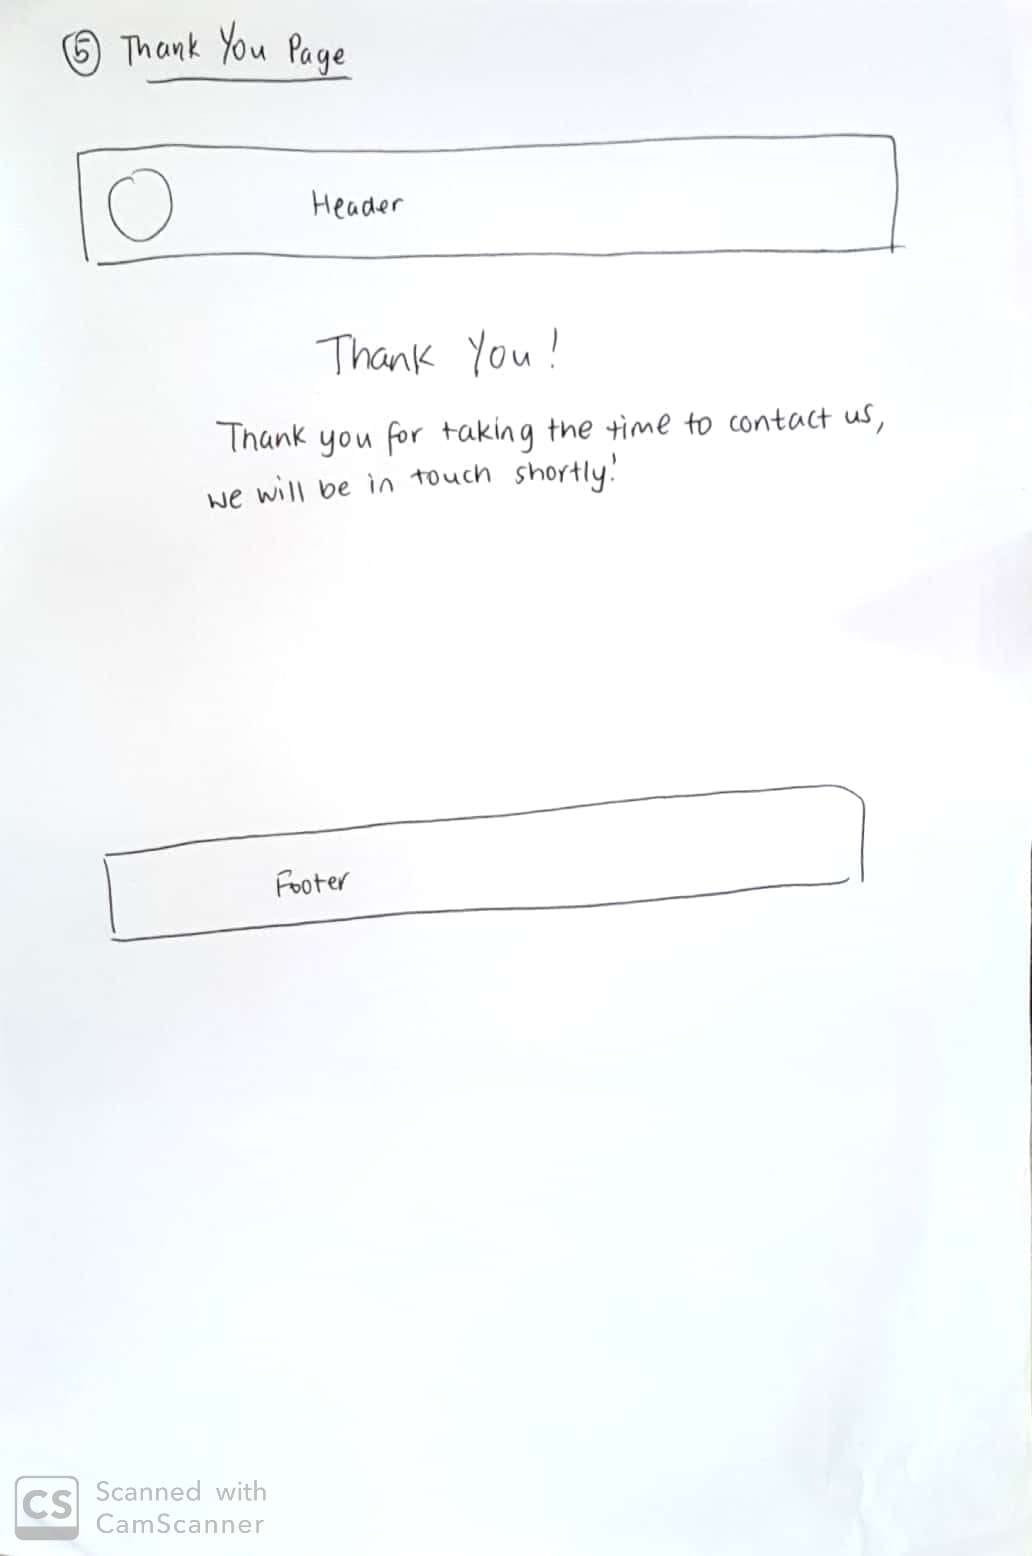 5 Thank You Page
Header
Thank You!
Thank you for taking the time to contact us,
we will be in touch shortly!
Footer
CS Scanned with
CamScanner